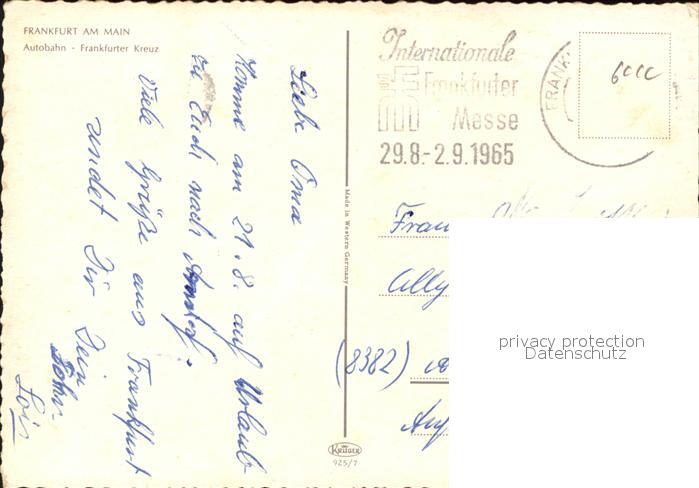 FRANKFURT AM MAIN
Autobahn - Frankfurter Kreuz
Internationale
Frankfurter
Messe
29.8.-2.9.1965
FRANK
6ccc
Liebe Oma
Komme am 21.8. auf Urlaub
zu Euch nach
Viele Grüße aus Frankfurt
sendet Dir Dein
Lois
Made in Western Germany
Frau
(8382)
KRÜGER
925/7
privacy protection
Datenschutz